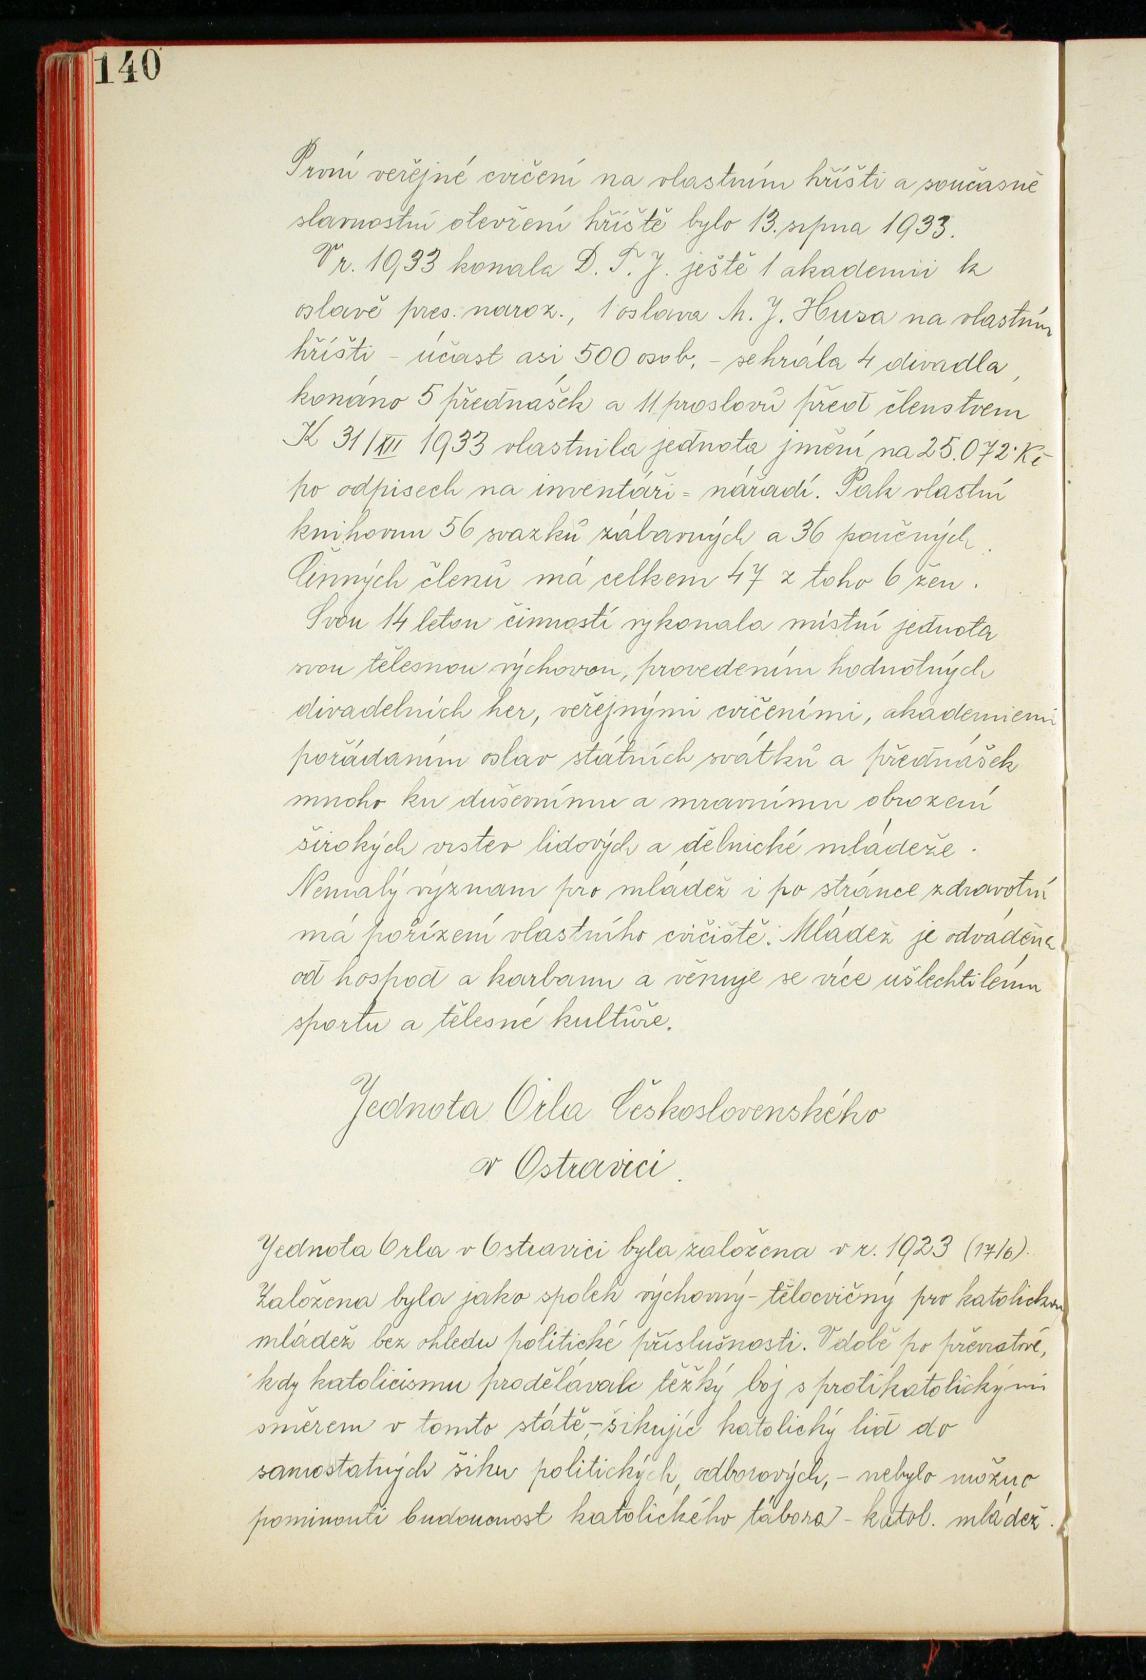 140
První veřejné cvičení na vlastním hřišti a současně
slavnostní otevření hřiště bylo 13. srpna 1933.
V r. 1933 konala D. T. J. ještě 1 akademii k
oslavě pres. naroz., 1 oslava M. J. Husa na vlastním
hřišti - účast asi 500 osob, - sehrála 4 divadla,
konáno 5 přednášek a 11 proslovů před členstvem
K 31/XII 1933 vlastnila jednota jmění na 25.072 Kč
po odpisech na inventáři = nářadí. Pak vlastní
knihovnu 56 svazků zábavných a 36 poučných.
Činných členů má celkem 47 z toho 6 žen.
Svou 14 letou činností vykonala místní jednota
svou tělesnou výchovou, provedením hodnotných
divadelních her, veřejnými cvičeními, akademiemi
pořádaním oslav státních svátků a přednášek
mnoho ku duševnímu a mravnímu obrození
širokých vrstev lidových a dělnické mládeže.
Nemalý význam pro mládež i po stránce zdravotní
má pořízení vlastního cvičiště. Mládež je odváděna
od hospod a karbanu a věnuje se více ušlechtilému
sportu a tělesné kultůře.
Jednota Orla Československého
v Ostravici.
Jednota Orla v Ostravici byla založena v r. 1923 (17/6).
Založena byla jako spolek výchovný - tělocvičný pro katolickou
mládež bez ohledu politické příslušnosti. V době po převratové,
kdy katolicismu prodělávale těžký boj s protikatolickými
směrem v tomto státě, - šikujíc katolický lid do
samostatných šiku politických, odborových, - nebylo možno
pominouti budoucnost katolického tábora - katol. mládež.